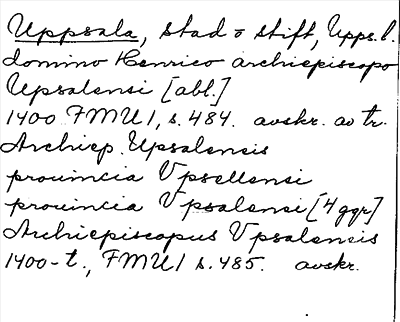 Uppsala, stad o stift, Upps. l.
domino Henrico archiepiscopo
Upsalensi [abl.]
1400 FMU 1, s. 484. avskr. av tr.
Archiep. Upsalensis
prouincia Vpsellensi
prouincia Vpsalensi [4 ggr]
Archiepiscopus Vpsalensis
1400-t., FMU 1 s. 485. avskr.